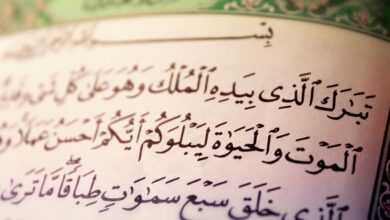 تَبَٰرَكَ ٱلَّذِى بِيَدِهِ ٱلْمُلْكُ وَهُوَ عَلَىٰ كُلِّ شَىْءٍ
ٱلْمَوْتَ وَٱلْحَيَوٰةَ لِيَبْلُوَكُمْ أَيُّكُمْ أَحْسَنُ عَمَلًا
ٱلَّذِى خَلَقَ سَبْعَ سَمَٰوَٰتٍ طِبَاقًا ۖ مَّا تَرَىٰ